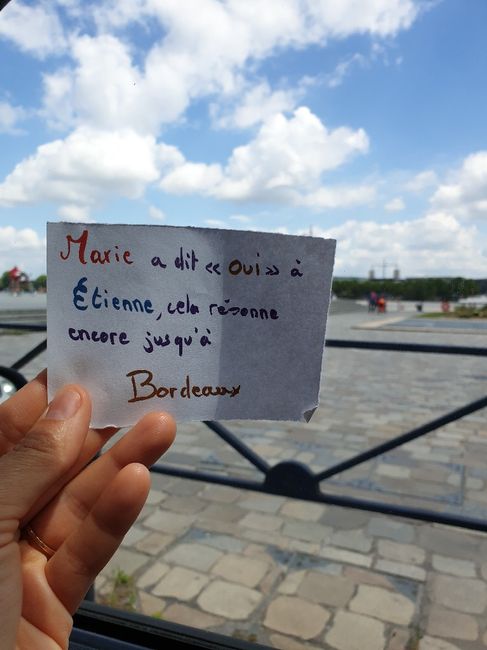 Marie a dit « Oui » à
Étienne, cela résonne
encore jusqu'à
Bordeaux